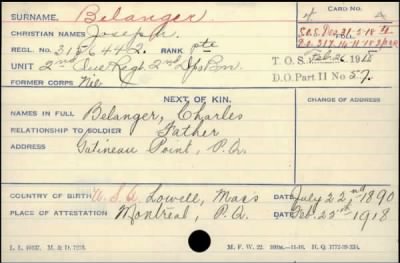 SURNAME. Belanger. CARD NO.
CHRISTIAN NAMES Joseph
REGL. NO. 3156442. RANK Pte
UNIT 2nd Que Regt. 2nd Dps Bn. T.O.S. Feb 26 1918
FORMER CORPS Nil D.O. Part II No 57.
NEXT OF KIN. CHANGE OF ADDRESS
NAMES IN FULL Belanger, Charles
RELATIONSHIP TO SOLDIER Father
ADDRESS Gatineau Point, P.Q.
COUNTRY OF BIRTH U.S.A Lowell, Mass DATE July 22nd 1890
PLACE OF ATTESTATION Montreal, P.Q. DATE Feb. 23rd 1918
M. F. W. 22.